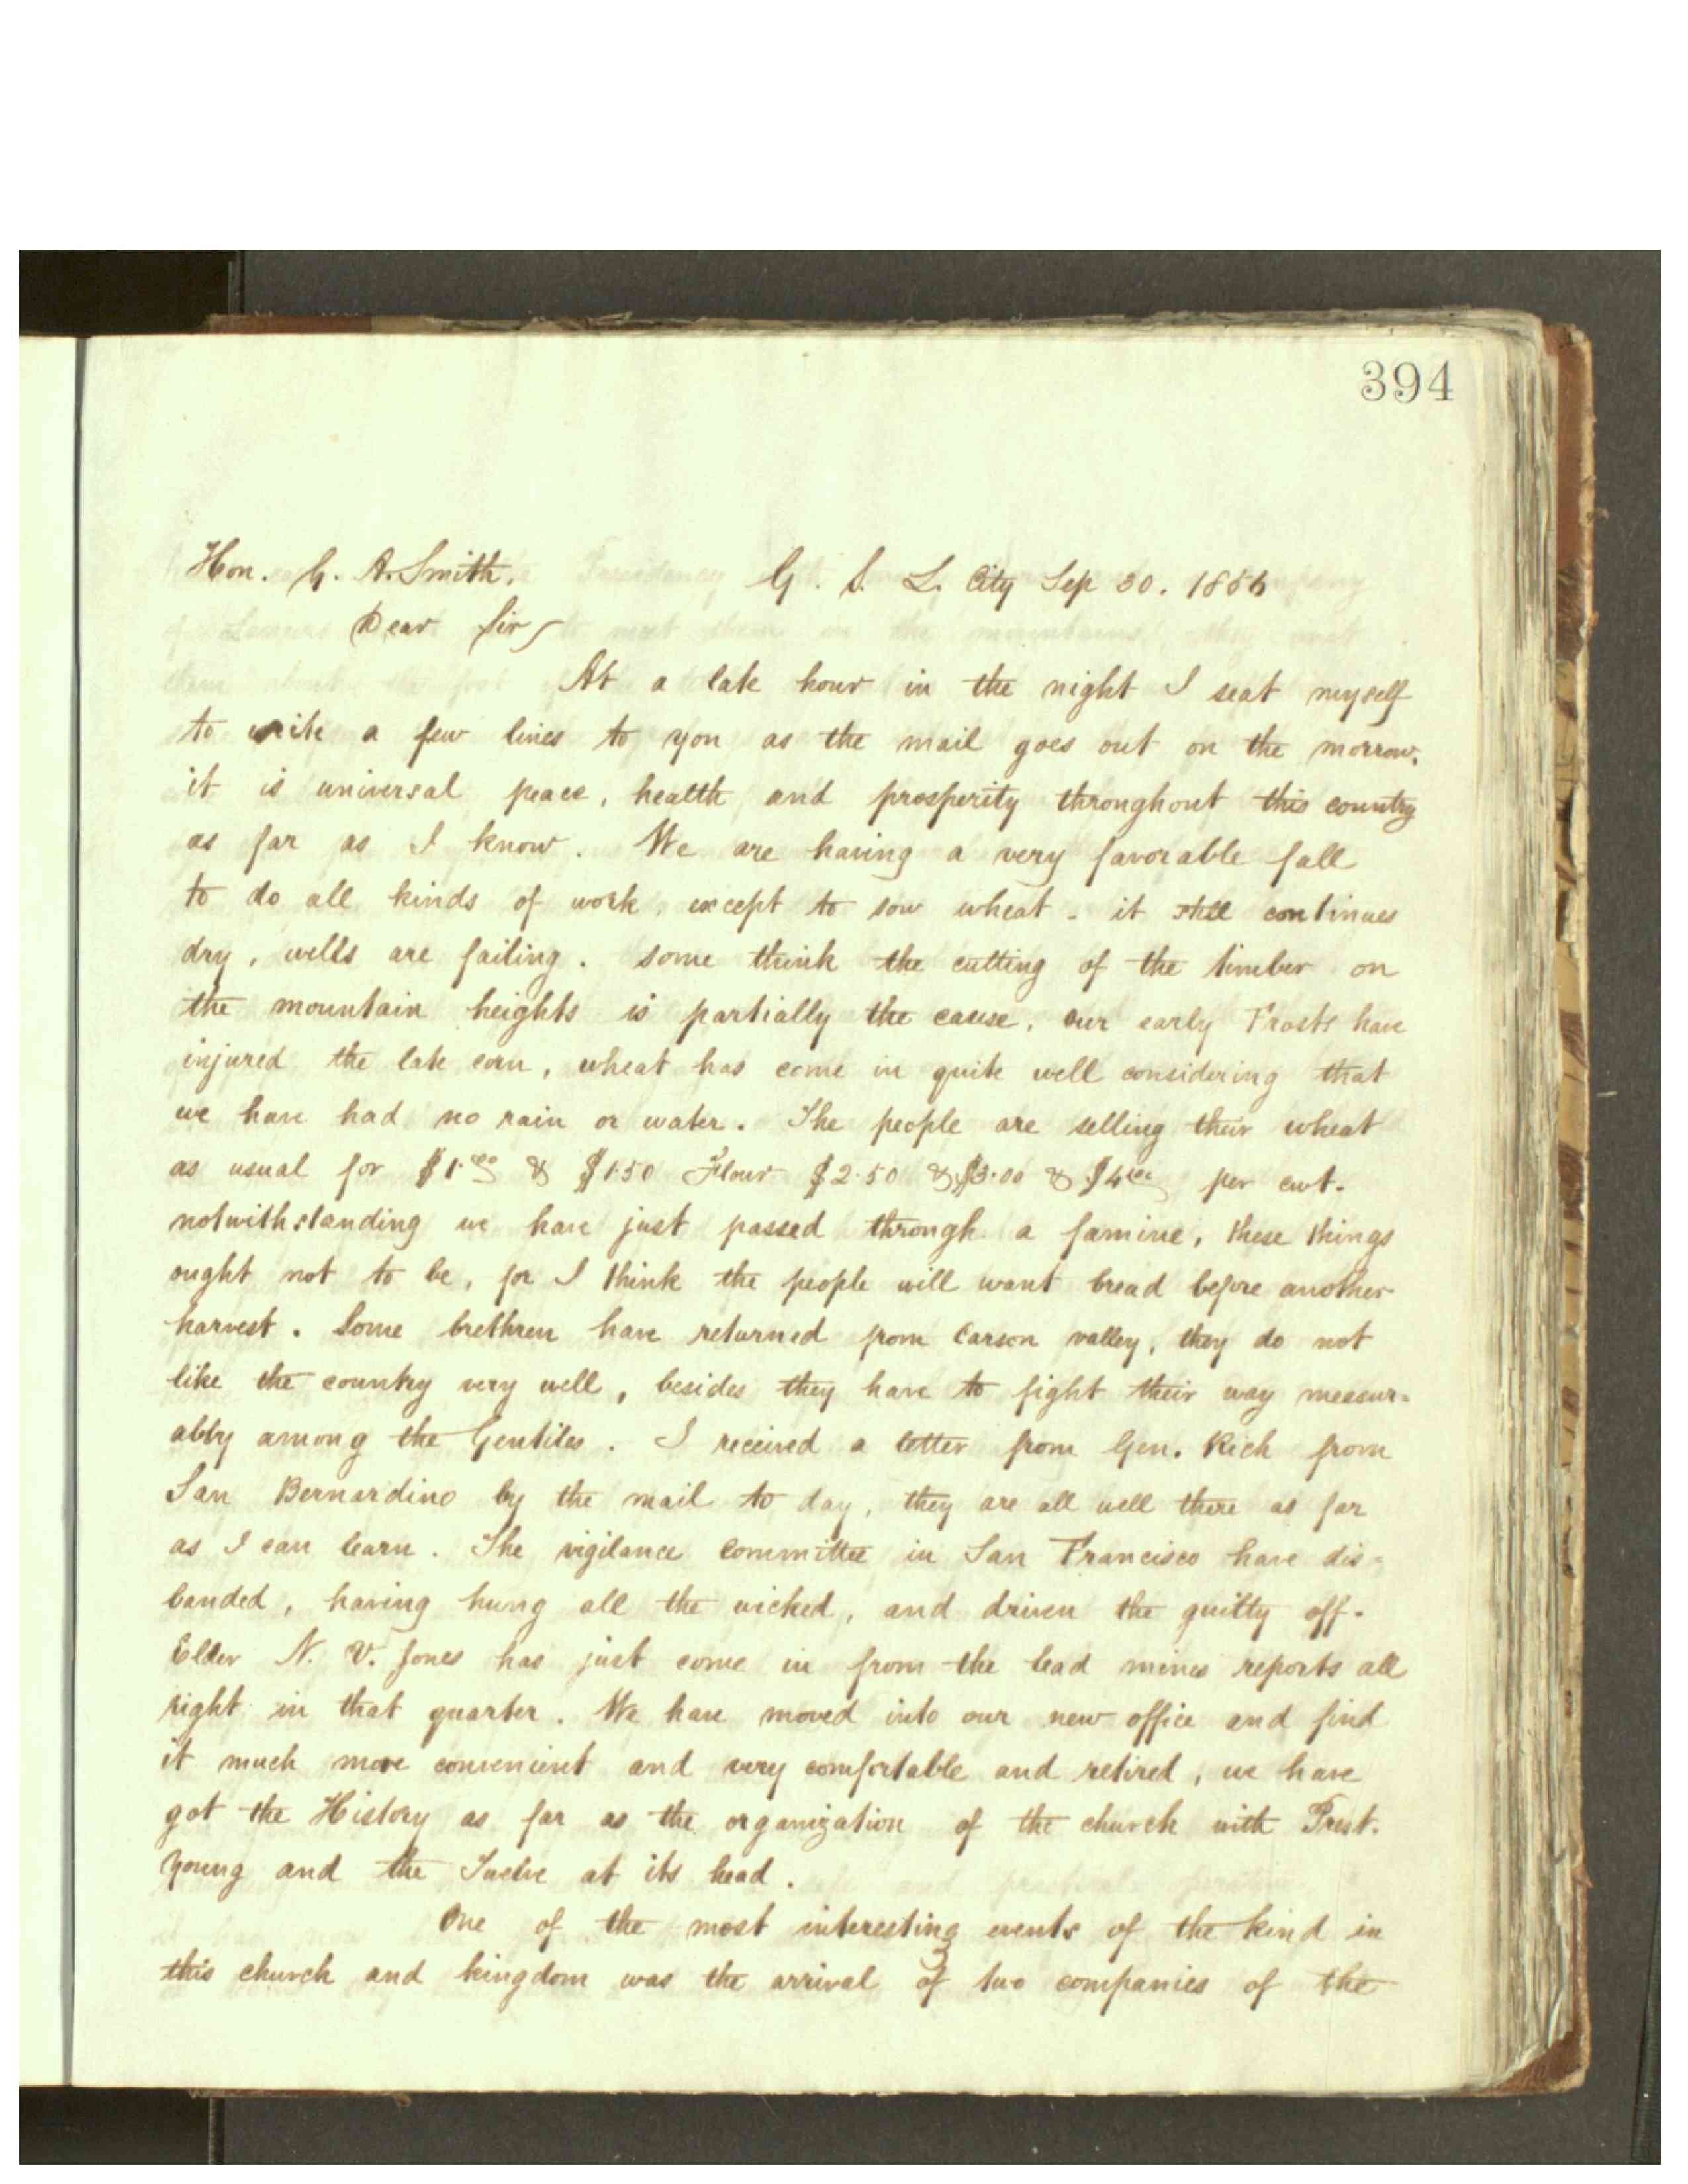 394
Hon. G. A. Smith. G. S. L. City Sep 30. 1856
Dear Sir
At a late hour in the night I seat myself
to write a few lines to you as the mail goes out on the morrow.
it is universal peace, health and prosperity throughout this country
as far as I know. We are having a very favorable fall
to do all kinds of work, except to sow wheat - it still continues
dry, wells are failing. some think the cutting of the timber on
the mountain heights is partially the cause, our early Frosts have
injured the late corn, wheat has come in quite well considering that
we have had no rain or water. The people are selling their wheat
as usual for $1.00 & $1.50 Flour $2.50 & $3.00 & $4.00 per cwt.
notwithstanding we have just passed through a famine, these things
ought not to be, for I think the people will want bread before another
harvest. Some brethren have returned from Carson valley, they do not
like the country very well, besides they have to fight their way measur=
ably among the Gentiles. I received a letter from Gen. Rich from
San Bernardino by the mail to day, they are all well there as far
as I can learn. The vigilance Committee in San Francisco have dis=
banded, having hung all the wicked, and driven the guilty off.
Elder N. V. Jones has just come in from the lead mines reports all
right in that quarter. We have moved into our new office and find
it much more convenient and very comfortable and retired, we have
got the History as far as the organization of the church with Prest.
Young and the Twelve at its head.
One of the most interesting events of the kind in
this church and kingdom was the arrival of two companies of the